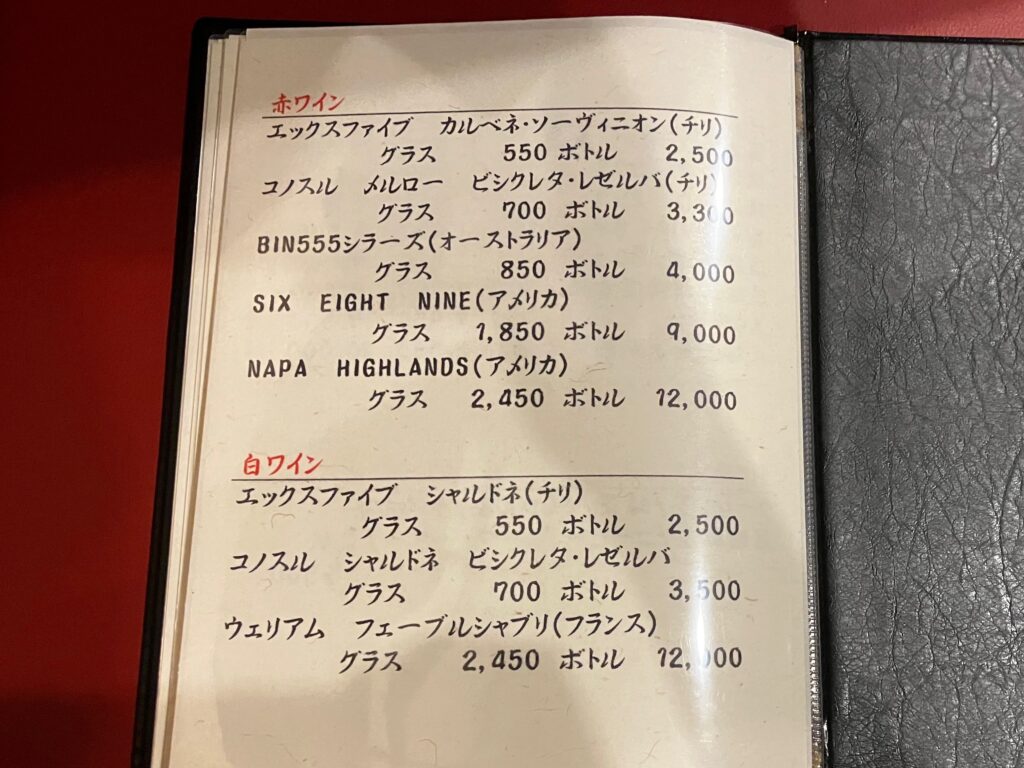 赤ワイン
エックスファイブ カルベネ・ソーヴィニオン(チリ)
グラス 550 ボトル 2,500
コノスル メルロー ビシクレタ・レゼルバ(チリ)
グラス 700 ボトル 3,300
BIN555シラーズ(オーストラリア)
グラス 850 ボトル 4,000
SIX EIGHT NINE(アメリカ)
グラス 1,850 ボトル 9,000
NAPA HIGHLANDS(アメリカ)
グラス 2,450 ボトル 12,000
白ワイン
エックスファイブ シャルドネ(チリ)
グラス 550 ボトル 2,500
コノスル シャルドネ ビシクレタ・レゼルバ
グラス 700 ボトル 3,500
ウェリアム フェーブルシャブリ(フランス)
グラス 2,450 ボトル 12,000